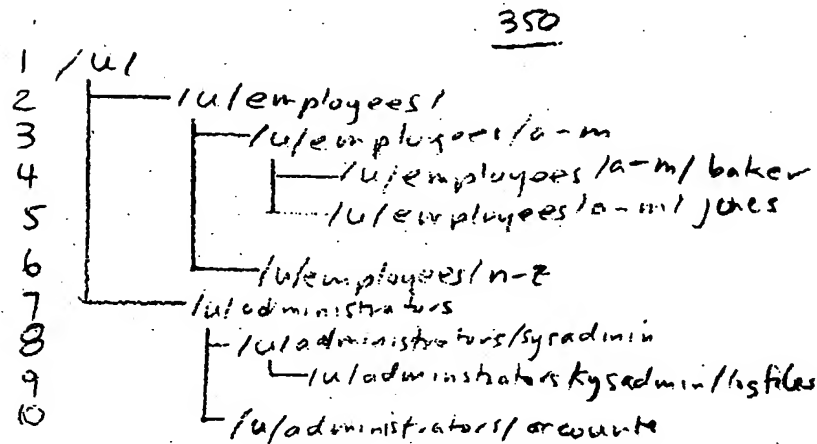 350
1 /u/
2 /u/employees/
3 /u/employees/a-m
4 /u/employees/a-m/baker
5 /u/employees/a-m/jones
6 /u/employees/n-z
7 /u/administrators
8 /u/administrators/sysadmin
9 /u/adminstrators/sysadmin/logfiles
10 /u/administrators/accounts